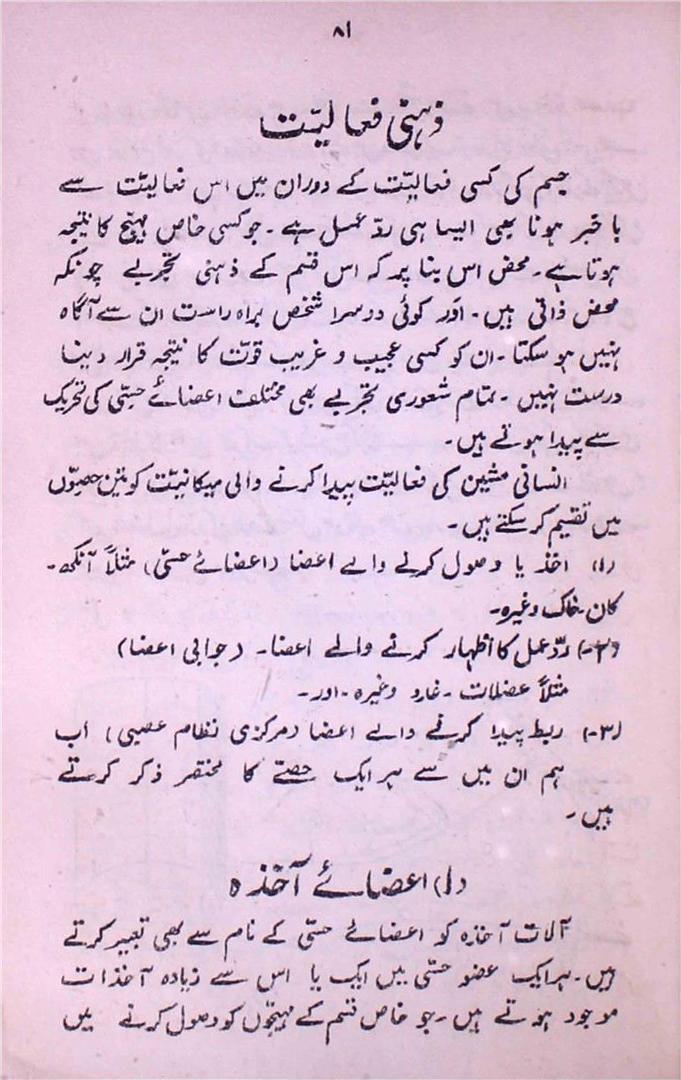 ۸۱
ذہنی فعالیّت
جسم کی کسی فعالیّت کے دوران میں اس فعالیّت سے
با خبر ہونا بھی ایسا ہی ردِّ عمل ہے۔ جو کسی خاص مہیّج کا نتیجہ
ہوتا ہے۔ محض اس بنا پر کہ اس قسم کے ذہنی تجربے چونکہ
محض ذاتی ہیں۔ اور کوئی دوسرا شخص براہ راست ان سے آگاہ
نہیں ہو سکتا۔ ان کو کسی عجیب و غریب قوّت کا نتیجہ قرار دینا
درست نہیں۔ تمام شعوری تجربے بھی مختلف اعضائے حِسّی کی تحریک
سے پیدا ہوتے ہیں۔
انسانی مشین کی فعالیّت پیدا کرنے والی میکانیّت کو تین حصوّں
میں تقسیم کر سکتے ہیں۔
(۱) اخذ یا وصول کرنے والے اعضا (اعضائے حسّی) مثلاً آنکھ۔
کان۔ ناک وغیرہ۔
(۲-) ردّ عمل کا اظہار کرنے والے اعضا۔ (جوابی اعضا)
مثلاً عضلات۔ غدود وغیرہ۔ اور۔
(۳-) ربط پیدا کرنے والے اعضا (مرکزی نظام عصبی) اب
ہم ان میں سے ہر ایک حصّے کا مختصر ذکر کرتے
ہیں۔
(۱) اعضائے آخذہ
آلات آخذہ کو اعضائے حسّی کے نام سے بھی تعبیر کرتے
ہیں۔ ہر ایک عضو حسّی میں ایک یا اس سے زیادہ آخذات
موجود ہوتے ہیں۔ جو خاص قسم کے مہیّجوں کو وصول کرنے میں